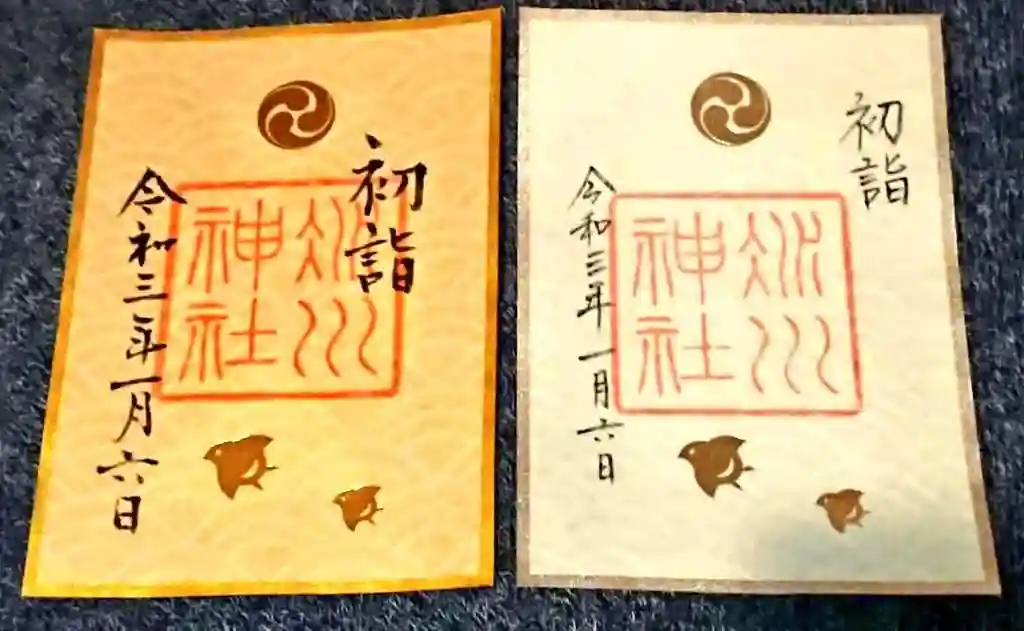 初詣
氷川
神社
令和三年一月六日
初詣
氷川
神社
令和三年一月六日